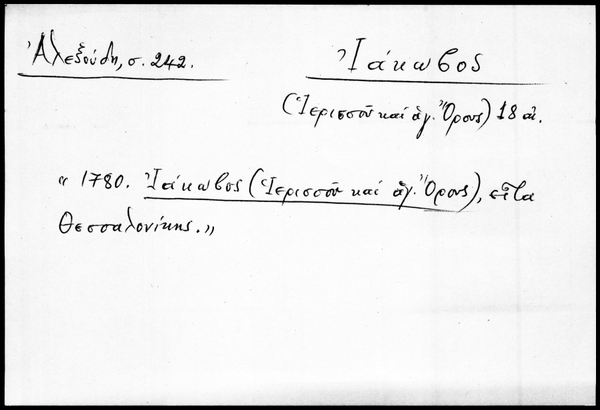 Ἀλεξούδη, σ. 242.
Ἰάκωβος
(Ἱερισσοῦ καὶ ἁγ. Ὄρους) 18 αἰ.
« 1780. Ἰάκωβος (Ἱερισσοῦ καὶ ἁγ. Ὄρους), εἶτα
Θεσσαλονίκης. »